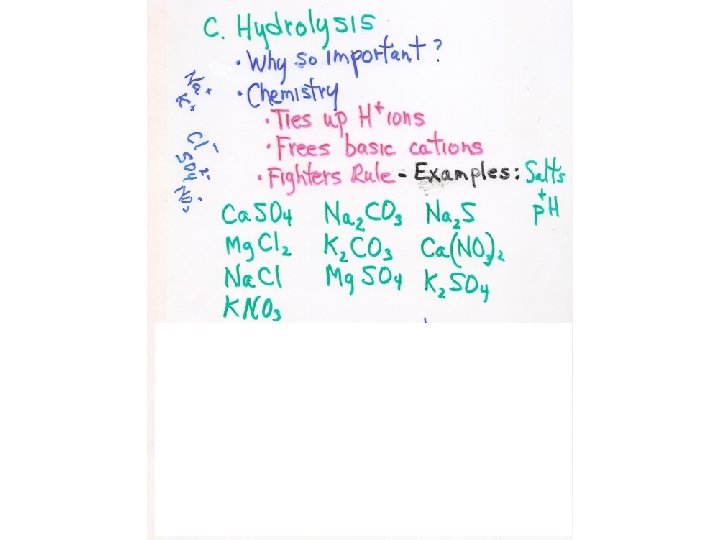 C. Hydrolysis
• Why so important?
• Chemistry
• Ties up H⁺ ions
• Frees basic cations
• Fighters Rule - Examples: Salts + pH
Na+
K+
Cl-
SO4 2-
NO3 -
CaSO₄ Na₂CO₃ Na₂S
MgCl₂ K₂CO₃ Ca(NO₃)₂
NaCl MgSO₄ K₂SO₄
KNO₃